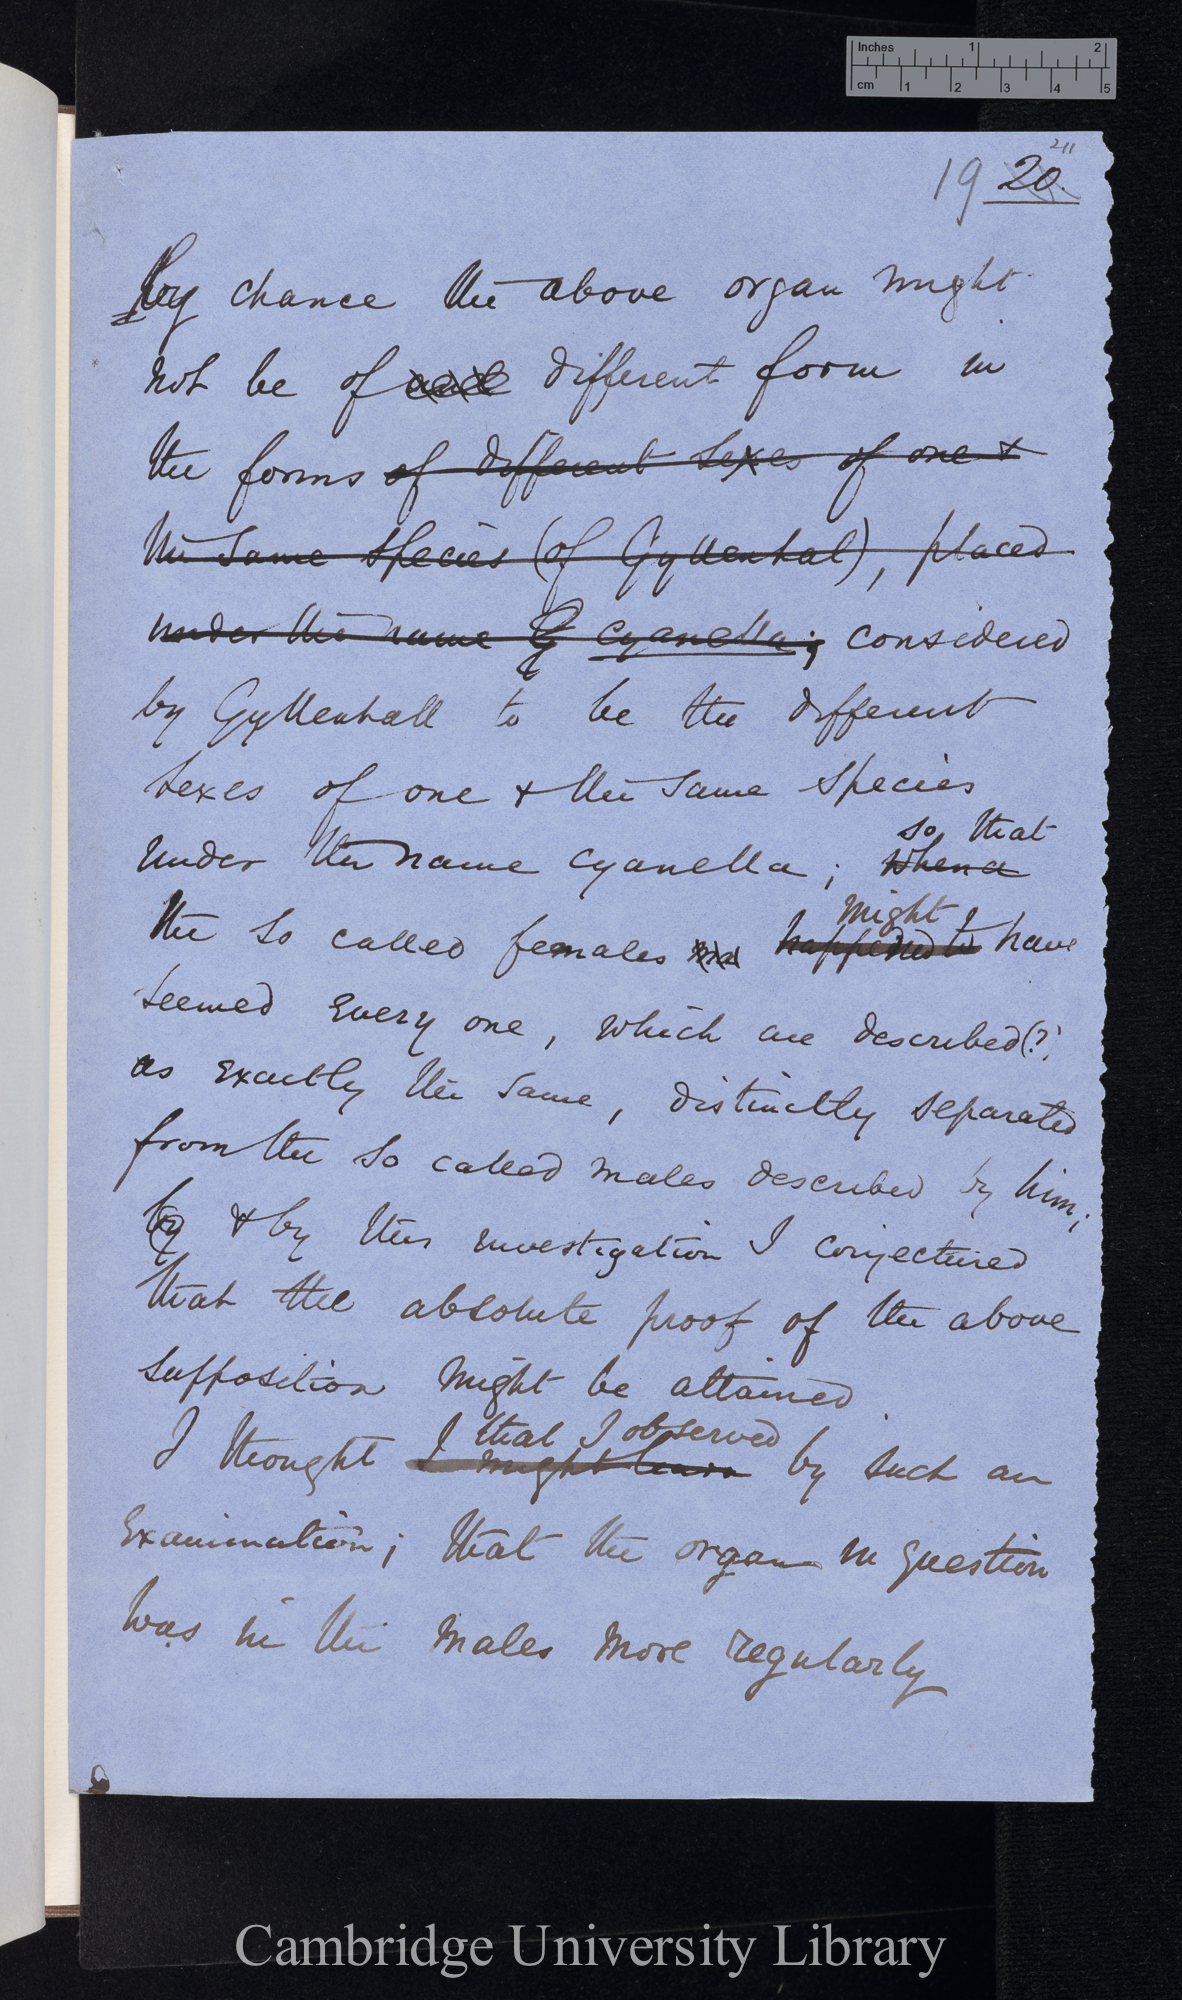 Inches 1 2
cm 1 2 3 4 5
211
19 20.
by chance the above organ might
not be of different form in
the forms of different sexes of one &
the same species (of Gyllenhal), placed
under the name G cyanella; considered
by Gyllenhall to be the different
sexes of one & the same species
so that
under the name cyanella; when a
might
the so called females happened to have
seemed every one, which are described (?)
as exactly the same, distinctly separated
from the so called males described by him;
by & by this investigation I conjectured
that the absolute proof of the above
supposition might be attained.
that I observed
I thought I might learn by such an
Examination; that the organ in question
was in the males more regularly
Cambridge University Library